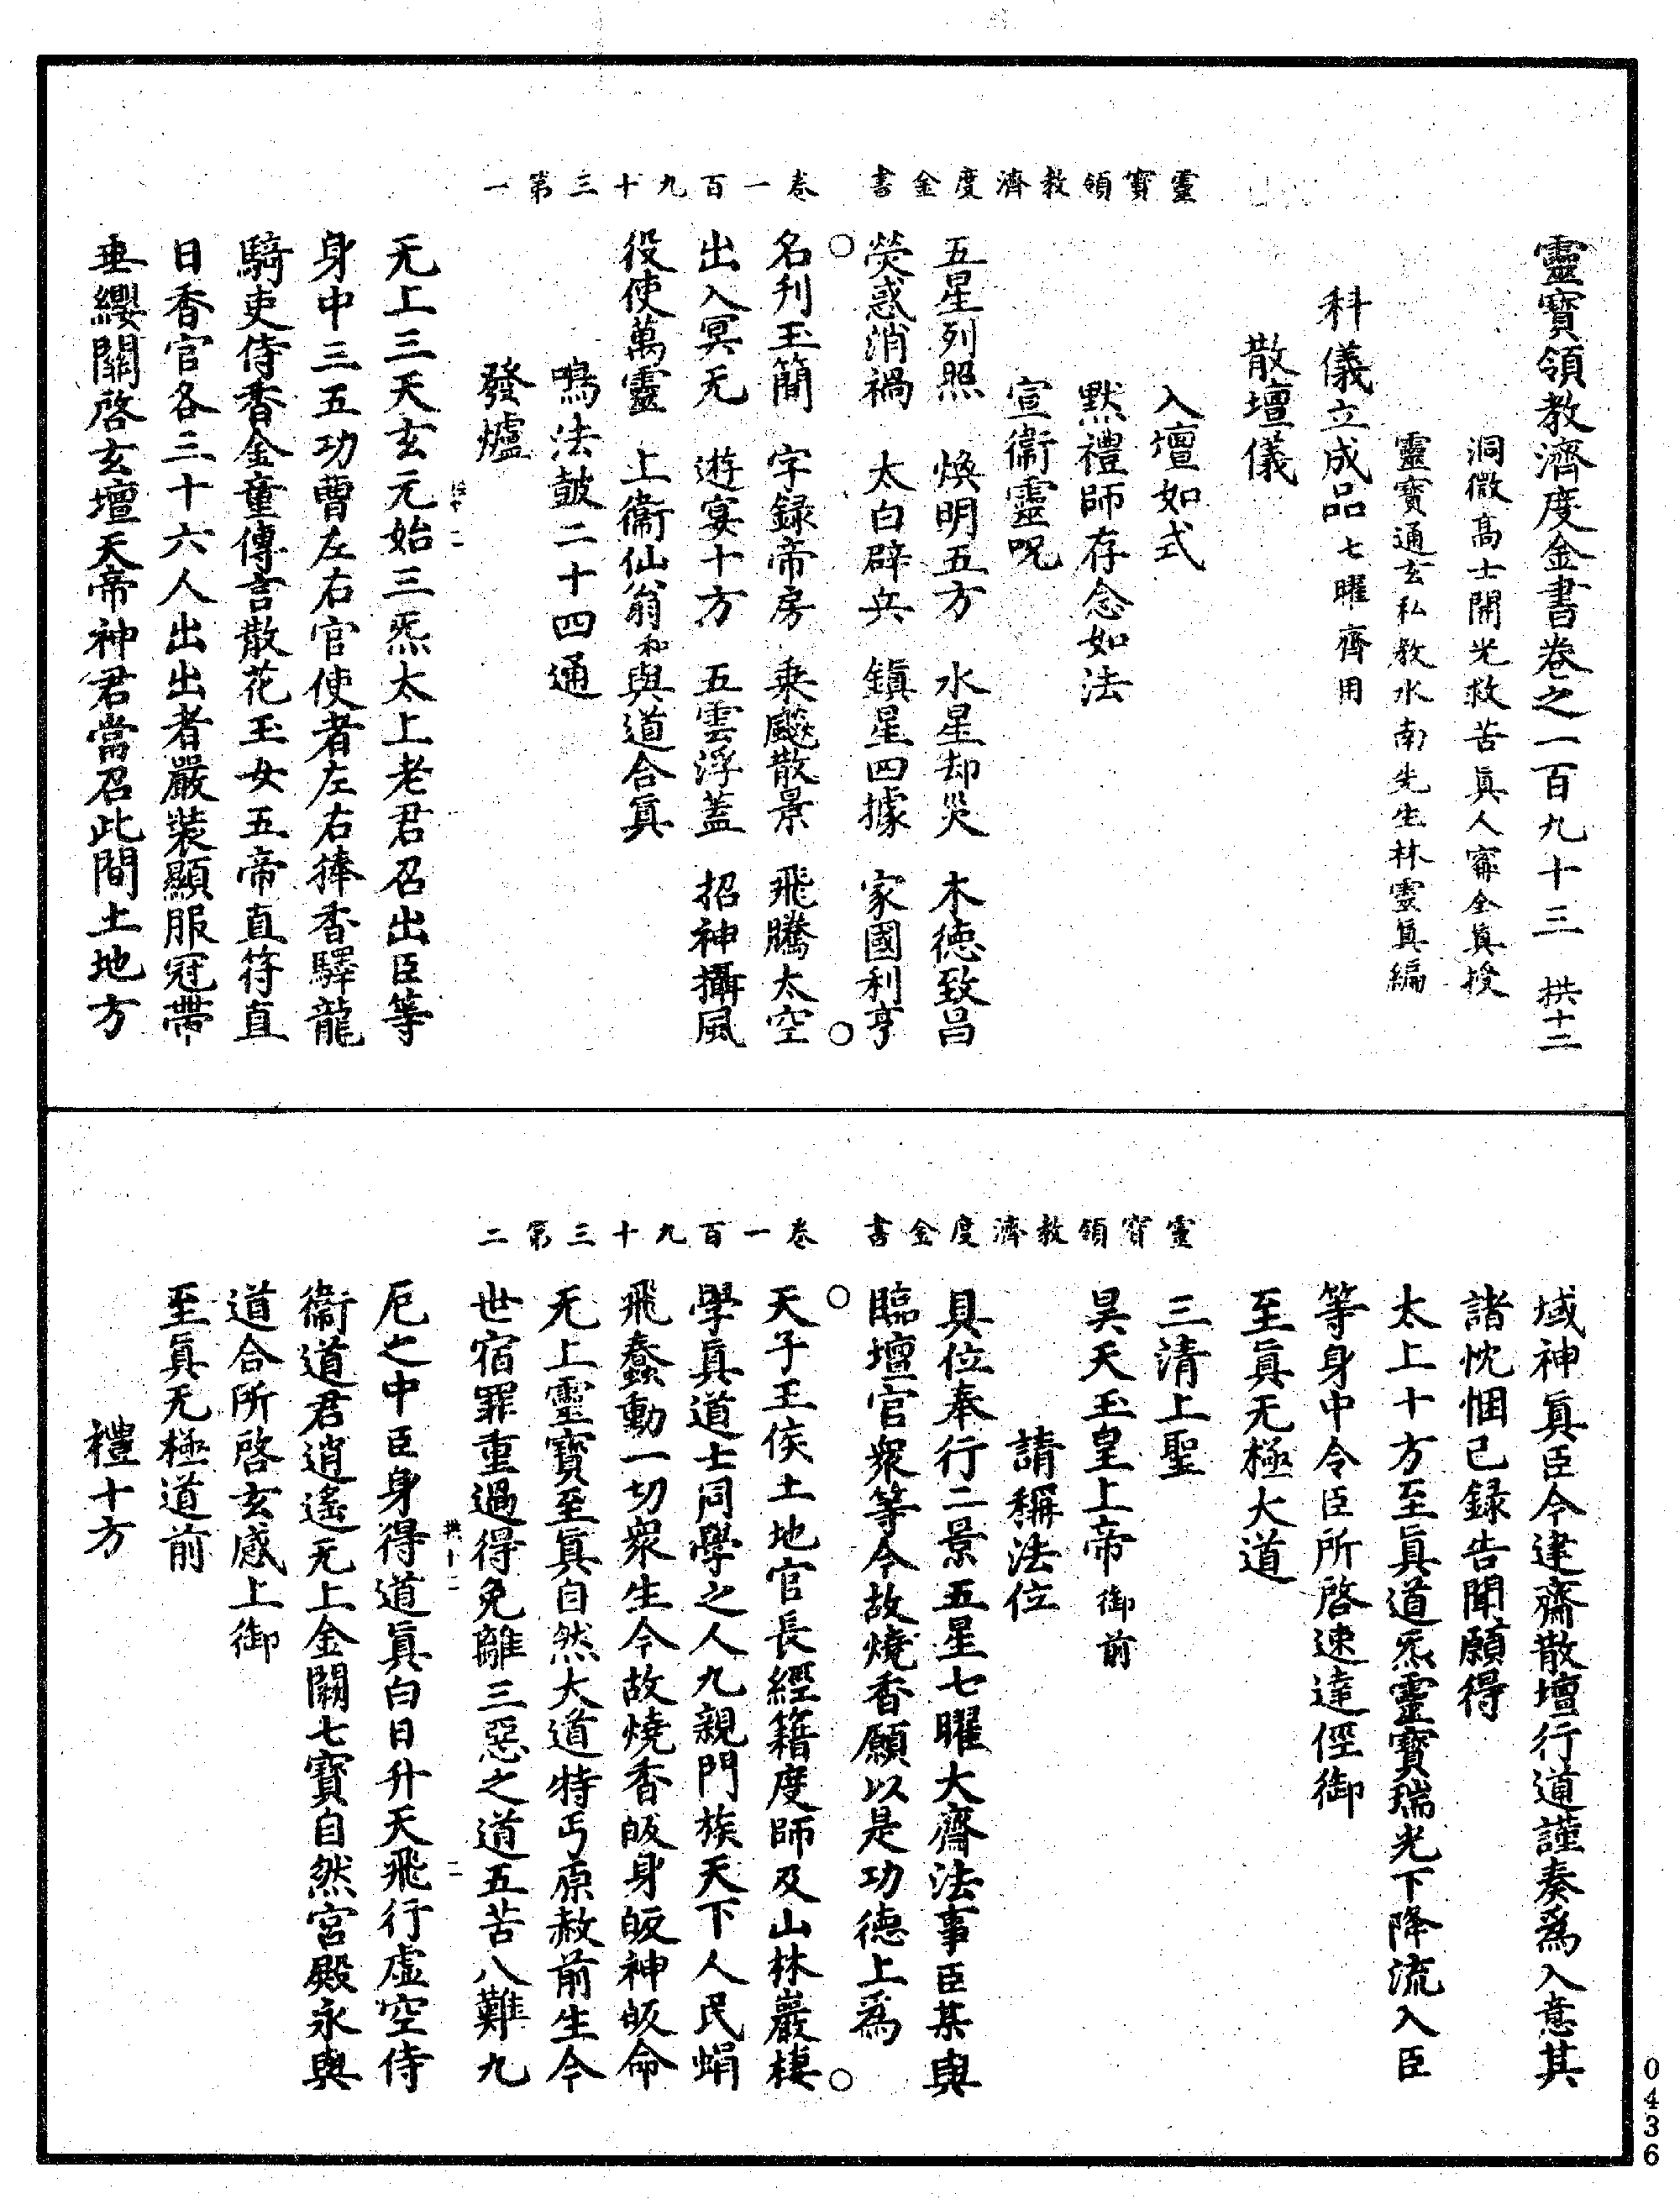 靈寶領教濟度金書卷之一百九十三 拱十二
洞微高士開光救苦眞人甯全眞授
靈寶通玄弘教水南先生林靈眞編
科儀立成品七曜齋用
散壇儀
入壇如式
默禮師存念如法
宣衞靈呪
五星列照 煥明五方 水星却災 木德致昌
熒惑消禍 太白辟兵 鎭星四據 家國利亨
靈寶領教濟度金書 卷一百九十三第一
名刋玉簡 字録帝房 乗飈散景 飛騰太空
出入冥无 遊宴十方 五雲浮蓋 招神攝風
役使萬靈 上衞仙翁和與道合眞
鳴法鼓二十四通
發爐
无上三天玄元始三炁太上老君召出臣等
身中三五功曹左右官使者左右捧香驛龍
騎吏侍香金童傳言散花玉女五帝直符直
日香官各三十六人出出者嚴裝顯服冠帶
垂纓關啓玄壇天帝神君當召此間土地方
域神眞臣今建齋散壇行道謹奏爲入意其
諸忱悃已録告聞願得
太上十方至眞道炁靈寶瑞光下降流入臣
等身中令臣所啓速達徑御
至眞无極大道
三清上聖
昊天玉皇上帝御前
請稱法位
具位奉行二景五星七曜大齋法事臣某與
臨壇官衆等今故燒香願以是功德上爲
靈寶領教濟度金書 卷一百九十三第二
天子王侯土地官長經籍度師及山林巖棲
學眞道士同學之人九親門族天下人民蜎
飛蠢動一切衆生今故燒香皈身皈神皈命
无上靈寶至眞自然大道特丐原赦前生今
世宿罪重過得免離三惡之道五苦八難九
拱十二 二
厄之中臣身得道眞白日升天飛行虛空侍
衞道君逍遙无上金闕七寶自然宮殿永與
道合所啓玄感上御
至眞无極道前
禮十方
0436